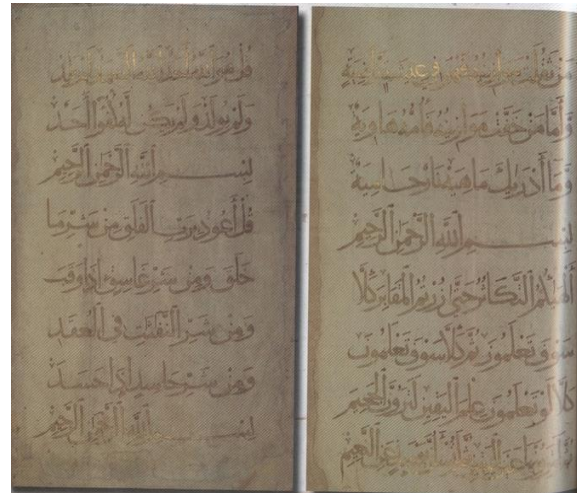 مَنْ ثَقُلَتْ مَوَازِينُهُ فَهُوَ فِي عِيشَةٍ رَاضِيَةٍ
وَأَمَّا مَنْ خَفَّتْ مَوَازِينُهُ فَأُمُّهُ هَاوِيَةٌ
وَمَا أَدْرَيكَ مَا هِيَهْ نَارٌ حَامِيَةٌ
بِسْمِ اللهِ الرَّحْمٰنِ الرَّحِيمِ
أَلْهَيكُمُ التَّكَاثُرُ حَتَّى زُرْتُمُ الْمَقَابِرَ كَلَّا
سَوْفَ تَعْلَمُونَ ثُمَّ كَلَّا سَوْفَ تَعْلَمُونَ
كَلَّا لَوْ تَعْلَمُونَ عِلْمَ الْيَقِينِ لَتَرَوُنَّ الْجَحِيمَ
عَيْنَ الْيَقِينِ ثُمَّ لَتُسْئَلُنَّ يَوْمَئِذٍ عَنِ النَّعِيمِ
قُلْ هُوَ اللهُ أَحَدٌ اللهُ الصَّمَدُ لَمْ يَلِدْ
وَلَمْ يُولَدْ وَلَمْ يَكُنْ لَهُ كُفُوًا أَحَدٌ
بِسْمِ اللهِ الرَّحْمٰنِ الرَّحِيمِ
قُلْ أَعُوذُ بِرَبِّ الْفَلَقِ مِنْ شَرِّ مَا
خَلَقَ وَمِنْ شَرِّ غَاسِقٍ إِذَا وَقَبَ
وَمِنْ شَرِّ النَّفّٰثٰتِ فِي الْعُقَدِ
وَمِنْ شَرِّ حَاسِدٍ إِذَا حَسَدَ
بِسْمِ اللهِ الرَّحْمٰنِ الرَّحِيمِ